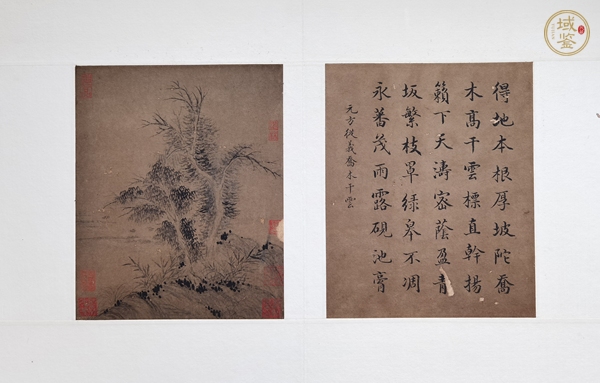 得地本根厚坡陀喬
木高干雲標直幹揚
籟下天濤密蔭盈青
坂繁枝罩綠皋不凋
永蕃茂雨露硯池膏
元方從義喬木干雲
域鉴